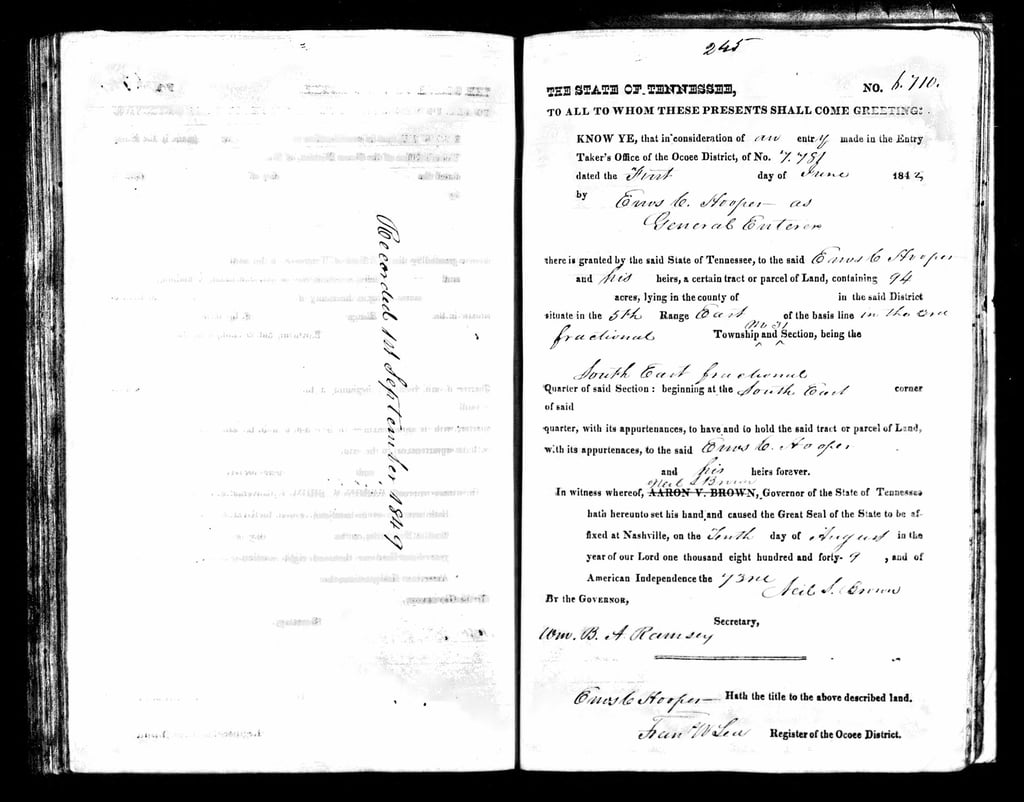 Recorded 1st September, 1849
245
THE STATE OF TENNESSEE, NO. 6.710.
TO ALL TO WHOM THESE PRESENTS SHALL COME GREETING:
KNOW YE, that in consideration of an entry made in the Entry
Taker's Office of the Ocoee District, of No. 7.781
dated the First day of June 1842
by Enos C. Hooper as
General Enterer
there is granted by the said State of Tennessee, to the said Enos C Hooper
and his heirs, a certain tract or parcel of Land, containing 94
acres, lying in the county of in the said District
situate in the 5th Range East of the basis line in the 3rd
No 31
fractional Township and Section, being the
South East fractional
Quarter of said Section: beginning at the South East corner
of said
quarter, with its appurtenances, to have and to hold the said tract or parcel of Land,
with its appurtences, to the said Enos C. Hooper
and his heirs forever.
Neil S Brown
In witness whereof, AARON V. BROWN, Governor of the State of Tennessee
hath hereunto set his hand and caused the Great Seal of the State to be af-
fixed at Nashville, on the Tenth day of August in the
year of our Lord one thousand eight hundred and forty- 9 , and of
American Independence the 73rd
Neil S. Brown
By the GOVERNOR,
Secretary,
Wm. B. A Ramsey
Enos C Hooper Hath the title to the above described land.
Register of the Ocoee District.